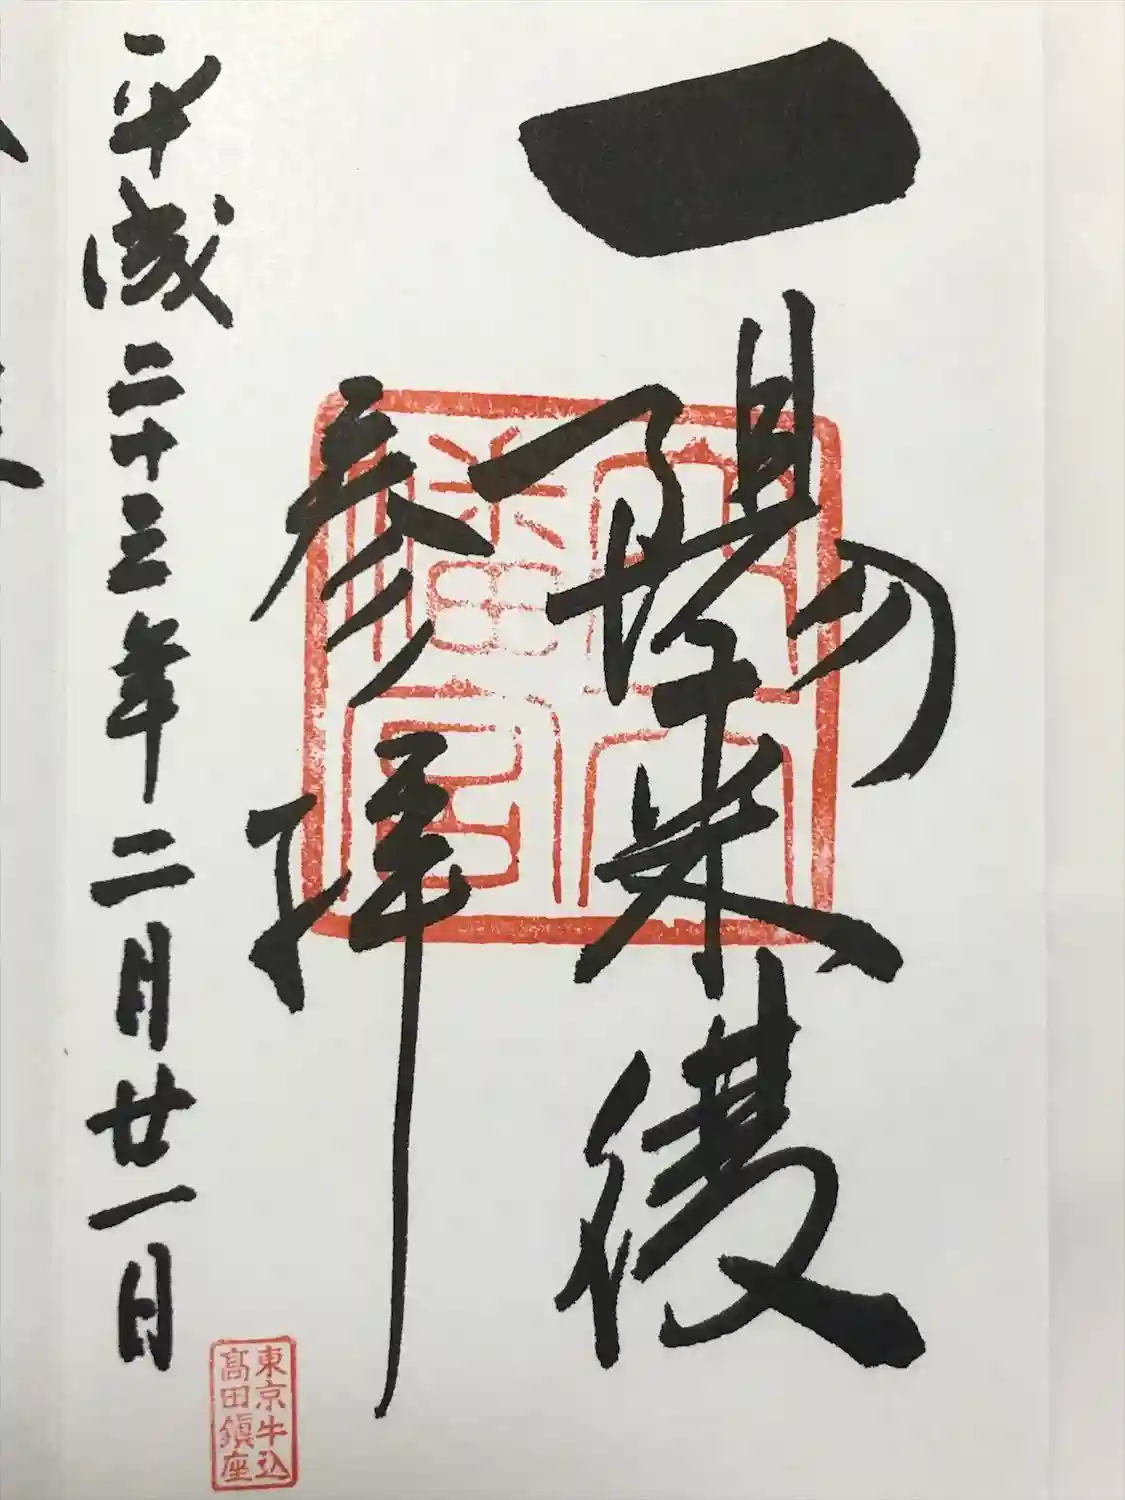 一陽来復
参拝
平成二十三年二月廿一日
穴八幡宮
東京牛込
高田鎮座